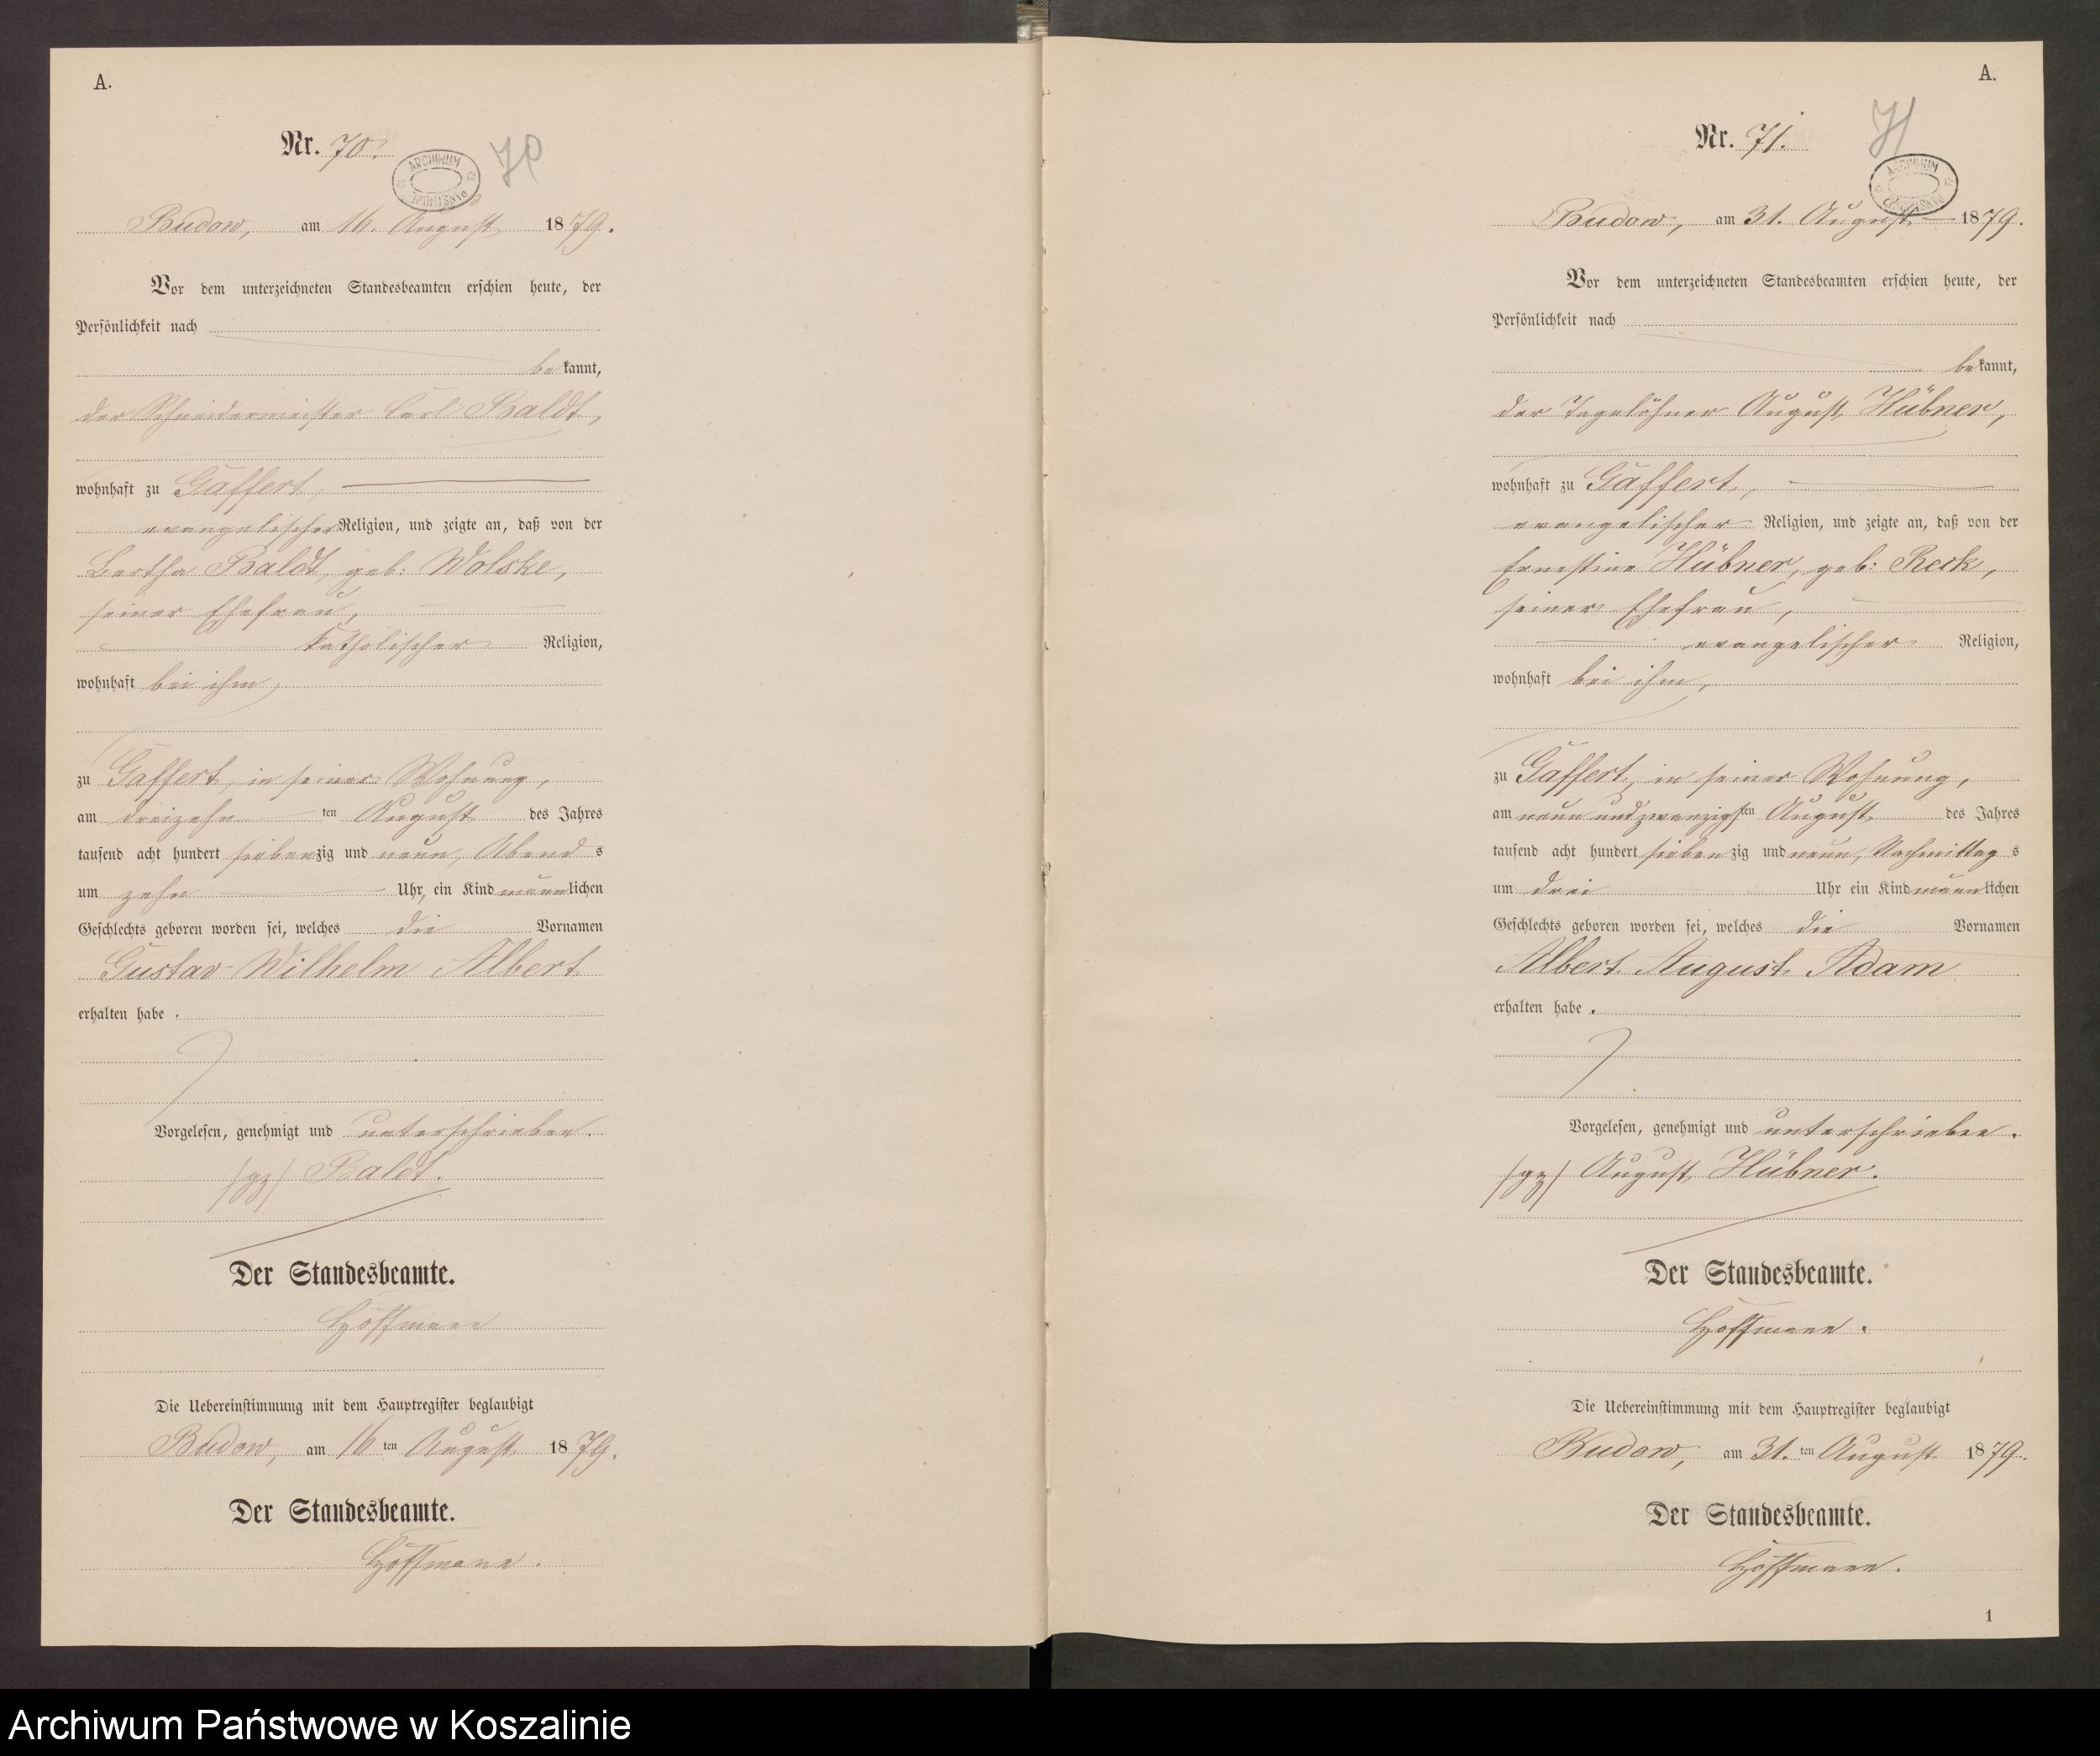 A.
Nr. 70.
70
ARCHIWUM
Budow, am 16. August 1879.
Vor dem unterzeichneten Standesbeamten erschien heute, der
Persönlichkeit nach
bekannt,
der Schneidermeister Carl Baldt,
wohnhaft zu Gaffert,
evangelischer Religion, und zeigte an, daß von der
Bertha Baldt, geb: Wolske,
seiner Ehefrau,
katholischer Religion,
wohnhaft bei ihm,
zu Gaffert, in seiner Wohnung,
am dreizehn ten August des Jahres
tausend acht hundert siebenzig und neun, Abend s
um zehn Uhr, ein Kind männlichen
Geschlechts geboren worden sei, welches die Vornamen
Gustav Wilhelm Albert
erhalten habe.
Vorgelesen, genehmigt und unterschrieben.
/gz/ Baldt.
Der Standesbeamte.
Hoffmann
Die Uebereinstimmung mit dem Hauptregister beglaubigt
Budow, am 16 ten August 1879.
Der Standesbeamte.
Hoffmann.
A.
Nr. 71.
71
ARCHIWUM
Budow, am 31. August 1879.
Vor dem unterzeichneten Standesbeamten erschien heute, der
Persönlichkeit nach
bekannt,
der Tagelöhner August Hübner,
wohnhaft zu Gaffert,
evangelischer Religion, und zeigte an, daß von der
Ernestine Hübner, geb: Reck,
seiner Ehefrau,
evangelischer Religion,
wohnhaft bei ihm,
zu Gaffert, in seiner Wohnung,
am neun und zwanzigsten August des Jahres
tausend acht hundert siebenzig und neun, Nachmittag s
um drei Uhr ein Kind männlichen
Geschlechts geboren worden sei, welches die Vornamen
Albert August Adam
erhalten habe.
Vorgelesen, genehmigt und unterschrieben.
/gz/ August Hübner.
Der Standesbeamte.
Hoffmann.
Die Uebereinstimmung mit dem Hauptregister beglaubigt
Budow, am 31. ten August 1879.
Der Standesbeamte.
Hoffmann.
1
Archiwum Państwowe w Koszalinie